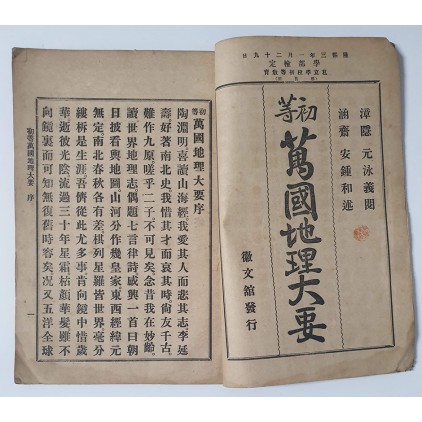 隆熙三年一月二十九日
學部檢定
漳隱 元泳義閱
涵齋 安鍾和述
初等 萬國地理大要
徽文館發行
初等 萬國地理大要序
陶淵明喜讀山海經我愛其人而悲其志李延
壽好著南北史我惜其才而哀其時尙友千古
難作九原嗟乎二子不可見矣念昔我在妙齡
讀世界地理志偶題七言律詩感興一首曰朝
日披看輿地圖山河分作幾皇家東西經緯元
無定南北春秋各有差棋列星羅皆世界毫分
縷柝是生涯吾儕從此尤多事肯向鏡中惜歲
華逝彼光陰流過三十年星霜枯顔華髮雖不
向鏡裏而可知無復舊時容矣况又五洋全球
初等萬國地理大要 序
一